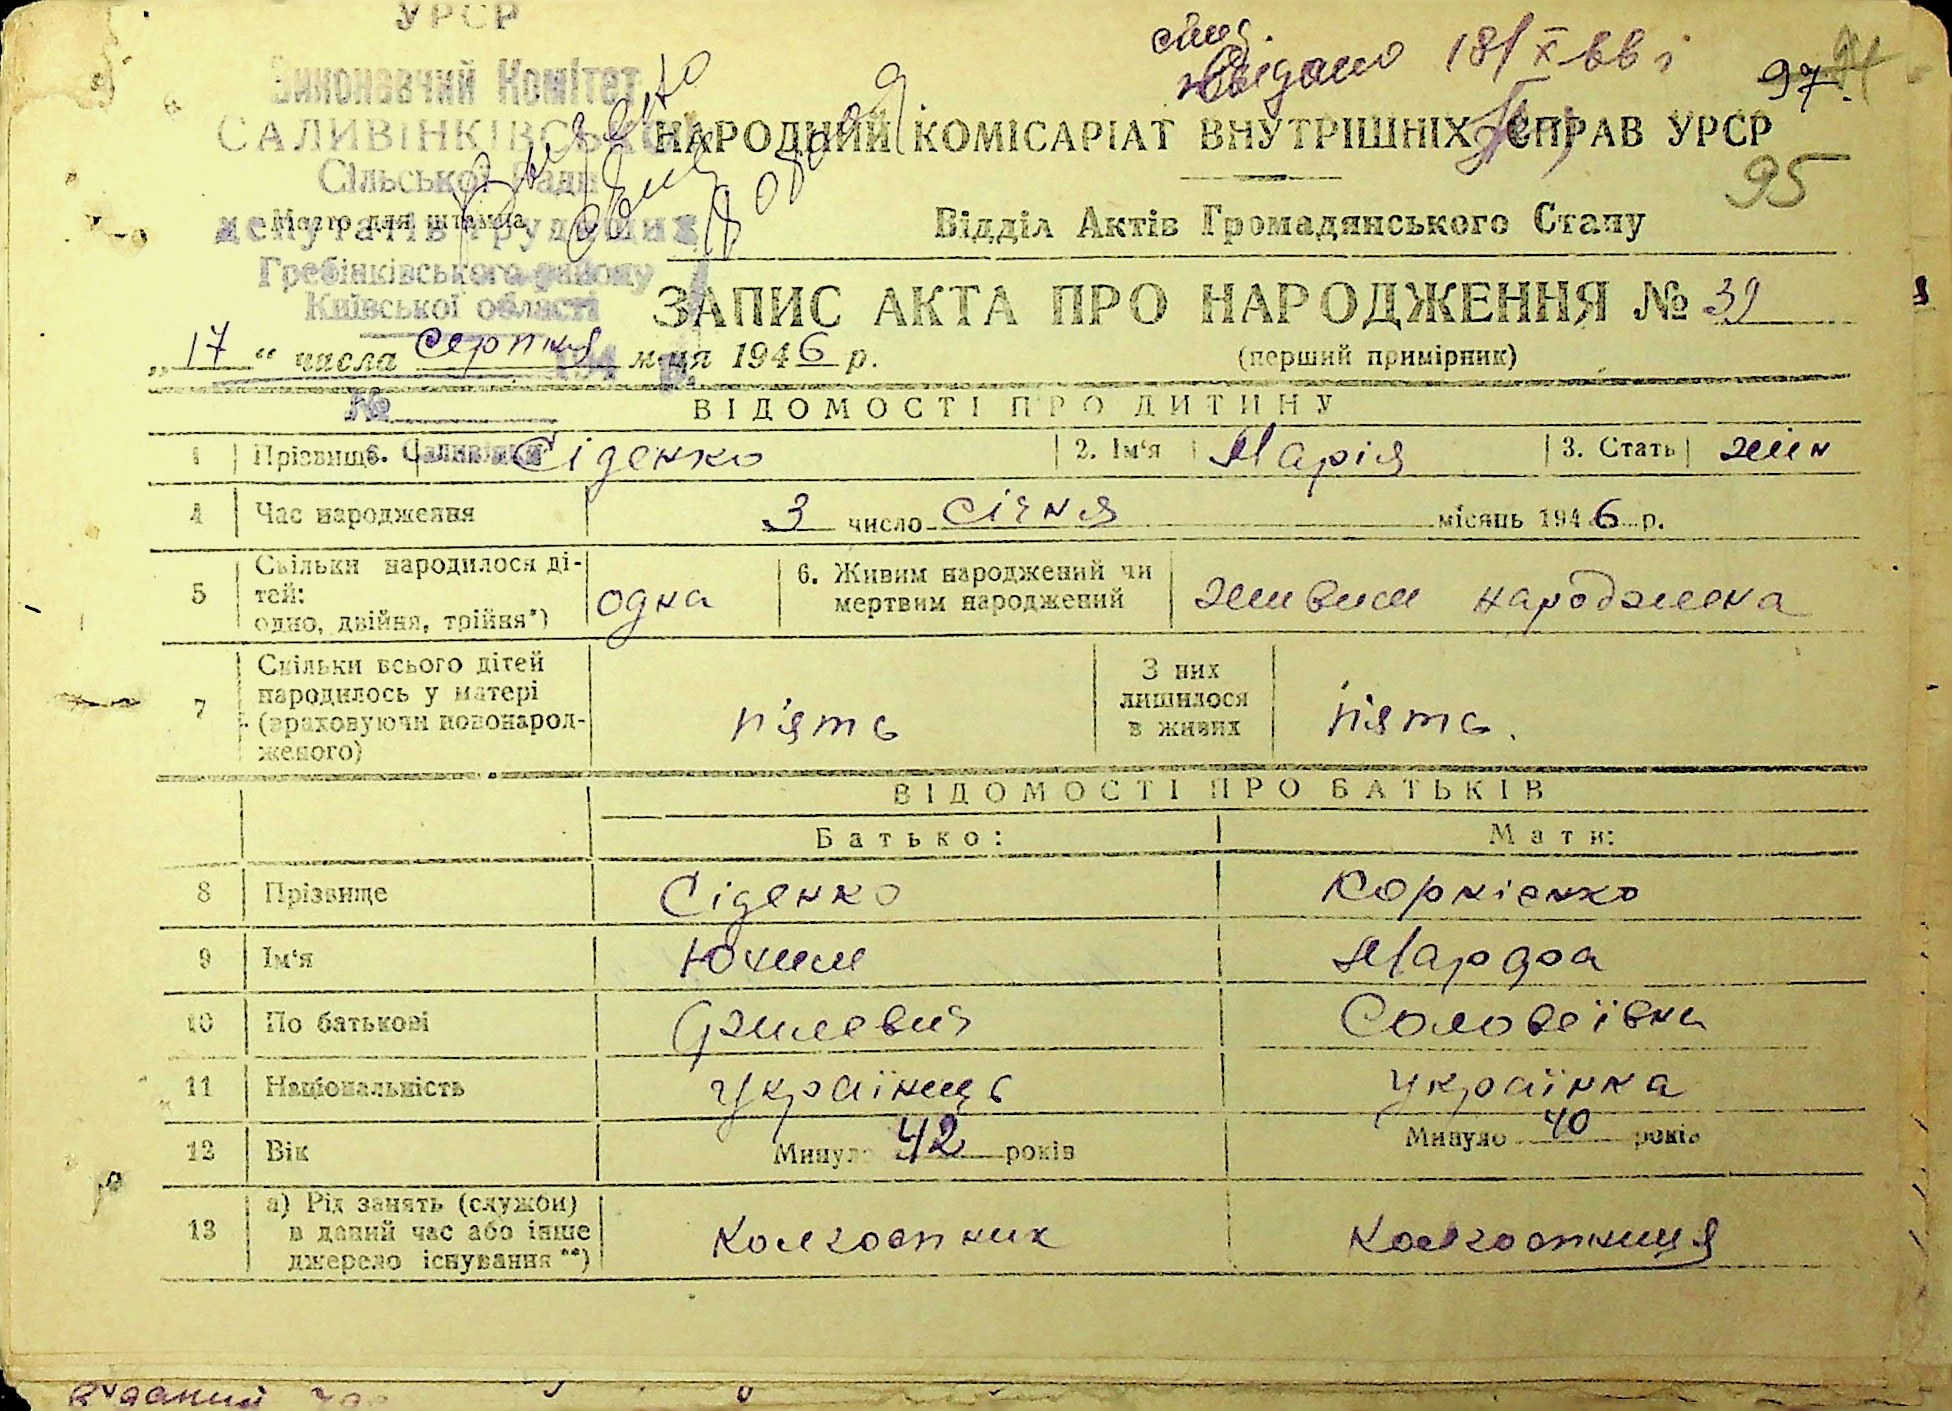 УРСР
Виконавчий Комітет
САЛИВІНКІВСЬКОЇ
Сільської Ради
депутатів трудящих
Гребінківського району
Київської області
194 р.
№
с. Саливінки
Місце для штампа
видано 18/X 66
97.
95
НАРОДНИЙ КОМІСАРІАТ ВНУТРІШНІХ СПРАВ УРСР
Відділ Актів Громадянського Стану
ЗАПИС АКТА ПРО НАРОДЖЕННЯ № 39
„17“ числа серпня м-ця 1946 р.
(перший примірник)
ВІДОМОСТІ ПРО ДИТИНУ
1 Прізвище Сіденко 2. Ім'я Марія 3. Стать жін
4 Час народження 3 число січня місяць 1946 р.
5 Скільки народилося ді-
тей:
одно, двійня, трійня*) одна
6. Живим народжений чи
мертвим народжений живим народжена
7 Скільки всього дітей
народилось у матері
(враховуючи новонарод-
женого) п'ять
З них
лишилося
в живих п'ять.
ВІДОМОСТІ ПРО БАТЬКІВ
Батько: Мати:
8 Прізвище Сіденко Корнієнко
9 Ім'я Юхим Марфа
10 По батькові Соловеївна
11 Національність українець українка
12 Вік Минуло 42 років Минуло 40 років
13 а) Рід занять (служби)
в даний час або інше
джерело існування **) колгоспник колгоспниця